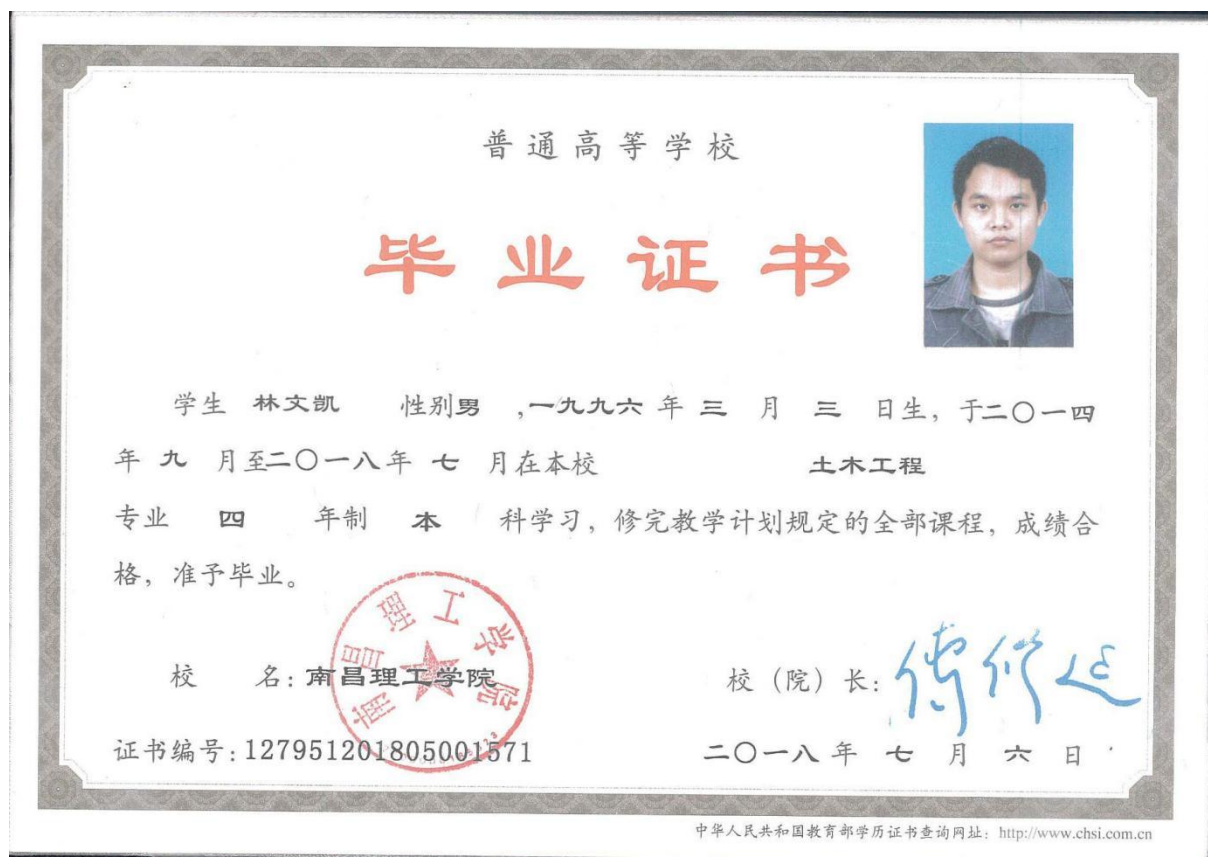 普通高等学校
毕业证书
学生 林文凯 性别男 ,一九九六 年 三 月 三 日生, 于二〇一四
年 九 月至二〇一八年 七 月在本校 土木工程
专业 四 年制 本 科学习, 修完教学计划规定的全部课程, 成绩合
格, 准予毕业。
南昌理工学院
校 名: 南昌理工学院 校 (院) 长:
证书编号: 127951201805001571 二〇一八 年 七 月 六 日
中华人民共和国教育部学历证书查询网址: http://www.chsi.com.cn